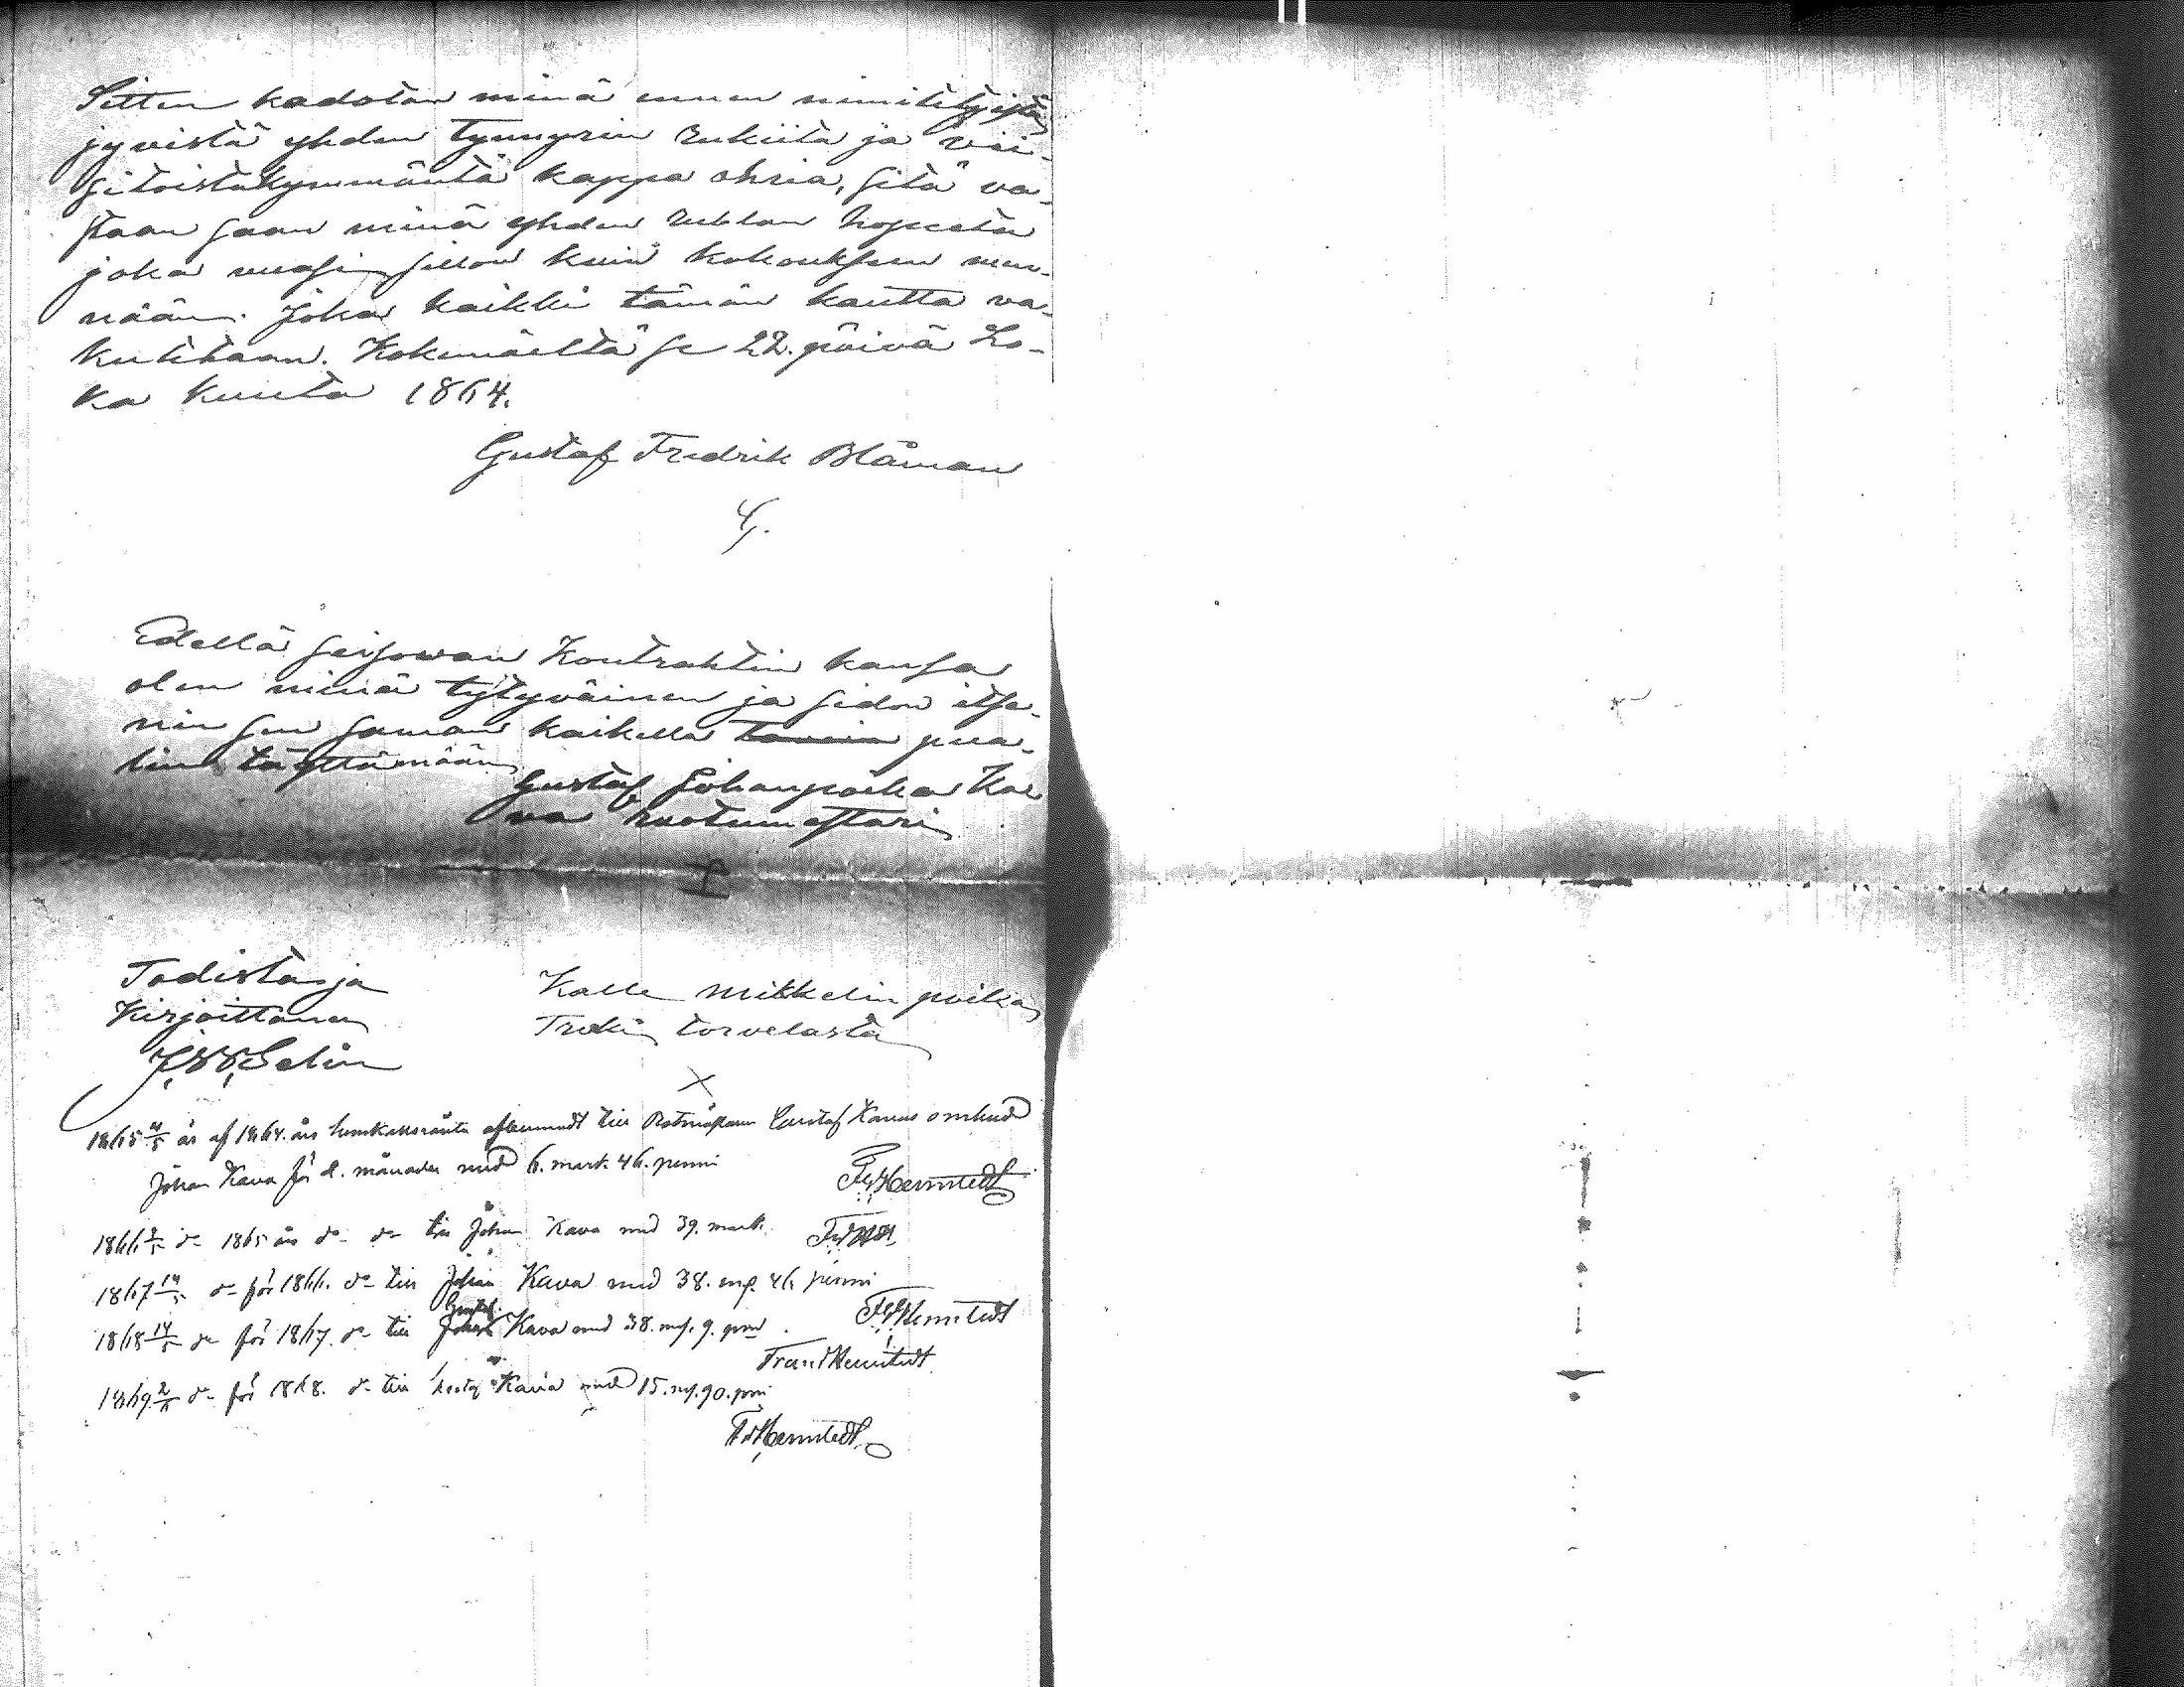 Sitten kadotan minä ennen nimitetyistä
jyvistä yhden tynnyrin rukiita ja vii-
sitoistakymmäntä kappa ohria, sitä va-
staan saan minä yhden rublan hopeeta
joka vuosi sillon kuin kokouksen men-
nään. Joka kaikki tämän kautta va-
kutetaan. Kokemäeltä se 22. päivä Lo-
ka kuuta 1864.
Gustaf Fredrik Blåman
Edellä seisowan Kontrahtin kansa
olen minä tytyväinen ja sidon itse-
nin sen saman kaikella puo-
lin täyttämään
Gustaf Johanpoika Ka
va ruotumestari
Todistaa ja
Kirjoittanu
Kalle Mikkelin poika
Torvelasta
Selin
1865 4/5 är af 1864 års till Gustaf Kavas ombud
Johan Kava för 2. månader med 6. mark 46. penni
FrHernstedt
1866 1865 års do do till Johan Kava med 39. mark
1867 14/5 do för 1866. do till Johan Kava med 38. mk. 46 penni
FrHernstedt
1868 14/5 do för 1867. do till Gustaf Kava med 38. mk. 9. pni
Frans Hernstedt
1869 2/5 do för 1868. do till Gustaf Kava med 15. mk. 90. pni
FrHernstedt